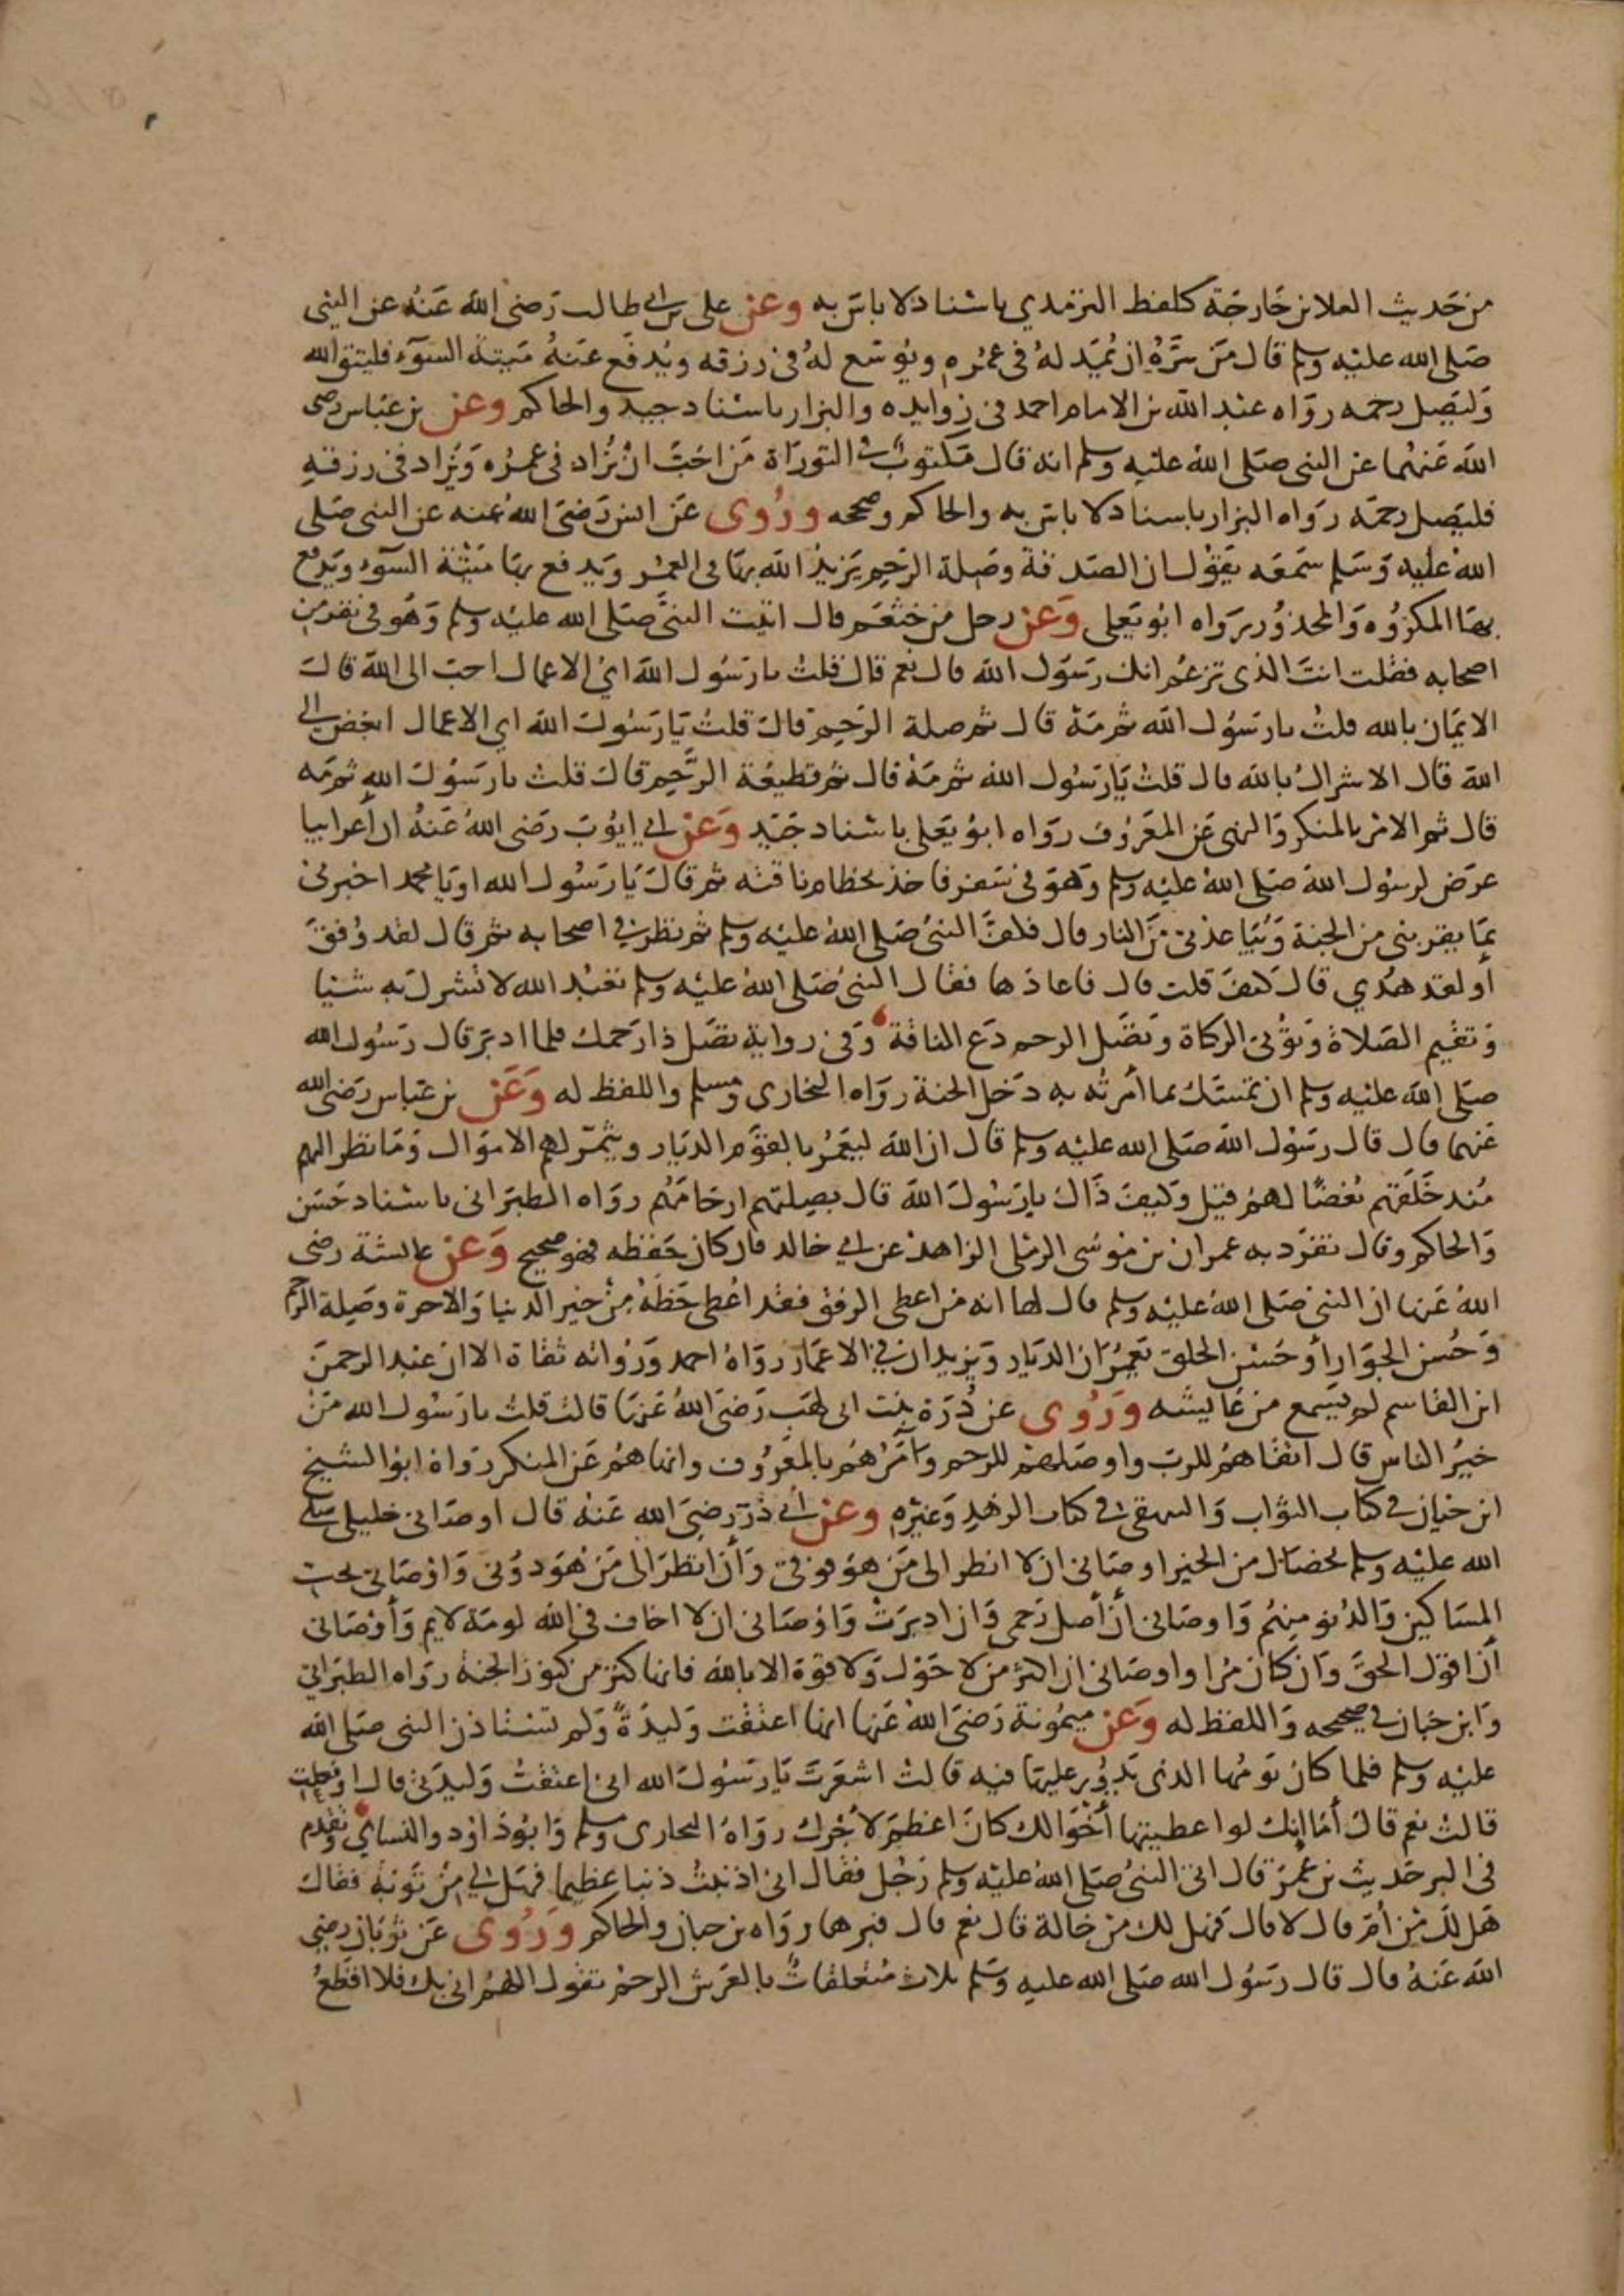 من حديث العلا بن خارجة كلفظ الترمذي باسناد لا باس به وعن علي بن ابي طالب رضي الله عنه عن النبي
صلى الله عليه وسلم قال من سره ان يمد له في عمره ويوسع له في رزقه ويدفع عنه ميتة السوء فليتق الله
وليصل رحمه رواه عبد الله بن الامام احمد في زوايده والبزار باسناد جيد والحاكم وعن بن عباس رضي
الله عنهما عن النبي صلى الله عليه وسلم انه قال مكتوب في التوراة من احب ان يزاد في عمره ويزاد في رزقه
فليصل رحمه رواه البزار باسناد لا باس به والحاكم وصححه وروي عن انس رضي الله عنه عن النبي صلى
الله عليه وسلم سمعه يقول ان الصدقة وصلة الرحم يزيد الله بها في العمر ويدفع بها ميتة السوء ويدفع
بها المكروه والمحذور رواه ابو يعلى وعن رجل من خثعم قال اتيت النبي صلى الله عليه وسلم وهو في نفر من
اصحابه فقلت انت الذي تزعم انك رسول الله قال نعم قال قلت يا رسول الله اي الاعمال احب الى الله قال
الايمان بالله قلت يا رسول الله ثم مه قال ثم صلة الرحم قال قلت يا رسول الله اي الاعمال ابغض الى
الله قال الاشراك بالله قال قلت يا رسول الله ثم مه قال ثم قطيعة الرحم قال قلت يا رسول الله ثم مه
قال ثم الامر بالمنكر والنهي عن المعروف رواه ابو يعلى باسناد جيد وعن ابي ايوب رضي الله عنه ان أعرابيا
عرض لرسول الله صلى الله عليه وسلم وهو في سفر فاخذ بخطام ناقته ثم قال يا رسول الله او يا محمد اخبرني
بما يقربني من الجنة ويباعدني من النار قال فكف النبي صلى الله عليه وسلم ثم نظر في اصحابه ثم قال لقد وفق
أو لقد هدي قال كيف قلت قال فاعادها فقال النبي صلى الله عليه وسلم تعبد الله لا تشرك به شيا
وتقيم الصلاة وتؤتي الزكاة وتصل الرحم دع الناقة وفي رواية تصل ذا رحمك فلما ادبر قال رسول الله
صلى الله عليه وسلم ان تمسك بما أمرته به دخل الجنة رواه البخاري ومسلم واللفظ له وعن بن عباس رضي الله
عنهما قال قال رسول الله صلى الله عليه وسلم قال ان الله ليعمر بالقوم الديار ويثمر لهم الاموال وما نظر اليهم
منذ خلقهم بغضا لهم قيل وكيف ذاك يا رسول الله قال بصلتهم ارحامهم رواه الطبراني باسناد حسن
والحاكم وقال تفرد به عمران بن موسى الرملي الزاهد عن ابي خالد فان كان حفظه فهو صحيح وعن عائشة رضي
الله عنها ان النبي صلى الله عليه وسلم قال لها انه من اعطي الرفق فقد اعطي حظه من خير الدنيا والاخرة وصلة الرحم
وحسن الجوار أو حسن الخلق يعمران الديار ويزيدان في الاعمار رواه احمد ورواته ثقاة الا ان عبد الرحمن
ابن القاسم لم يسمع من عايشه وروي عن درة بنت ابي لهب رضي الله عنها قالت قلت يا رسول الله من
خير الناس قال اتقاهم للرب واوصلهم للرحم وآمرهم بالمعروف وانهاهم عن المنكر رواه ابو الشيخ
ابن حيان في كتاب الثواب والبيهقي في كتاب الزهد وغيره وعن أبي ذر رضي الله عنه قال اوصاني خليلي صلى
الله عليه وسلم بخصال من الخير اوصاني ان لا انظر الى من هو فوقي وأن انظر الى من هو دوني واوصاني بحب
المساكين والدنو منهم واوصاني أن أصل رحمي وان ادبرت واوصاني ان لا اخاف في الله لومة لايم وأوصاني
أن اقول الحق وان كان مرا واوصاني ان اكثر من لا حول ولا قوة الا بالله فانها كنز من كنوز الجنة رواه الطبراني
وابن حبان في صحيحه واللفظ له وعن ميمونة رضي الله عنها انها اعتقت وليدة ولم تستاذن النبي صلى الله
عليه وسلم فلما كان يومها الذي يدور عليها فيه قالت اشعرت يا رسول الله اني اعتقت وليدتي قال او فعلت
قالت نعم قال أما إنك لو اعطيتها أخوالك كان اعظم لأجرك رواه البخاري ومسلم وابو داود والنسائي وتقدم
في البر حديث بن عمر قال اتى النبي صلى الله عليه وسلم رجل فقال اني اذنبت ذنبا عظيما فهل لي من توبة فقال
هل لك من أم قال لا قال فهل لك من خالة قال نعم قال فبرها رواه بن حبان والحاكم وروي عن ثوبان رضي
الله عنه قال قال رسول الله صلى الله عليه وسلم ثلاث متعلقات بالعرش الرحم تقول اللهم اني بك فلا اقطع